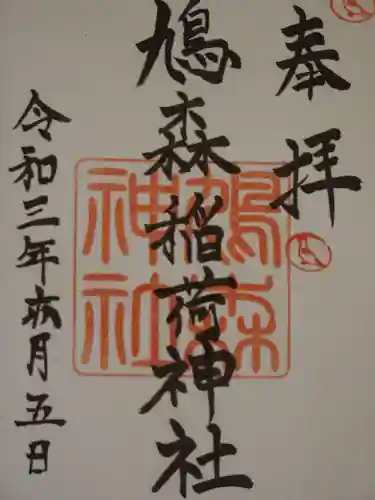 奉拝
鳩森稲荷神社
鳩森
神社
令和三年六月五日